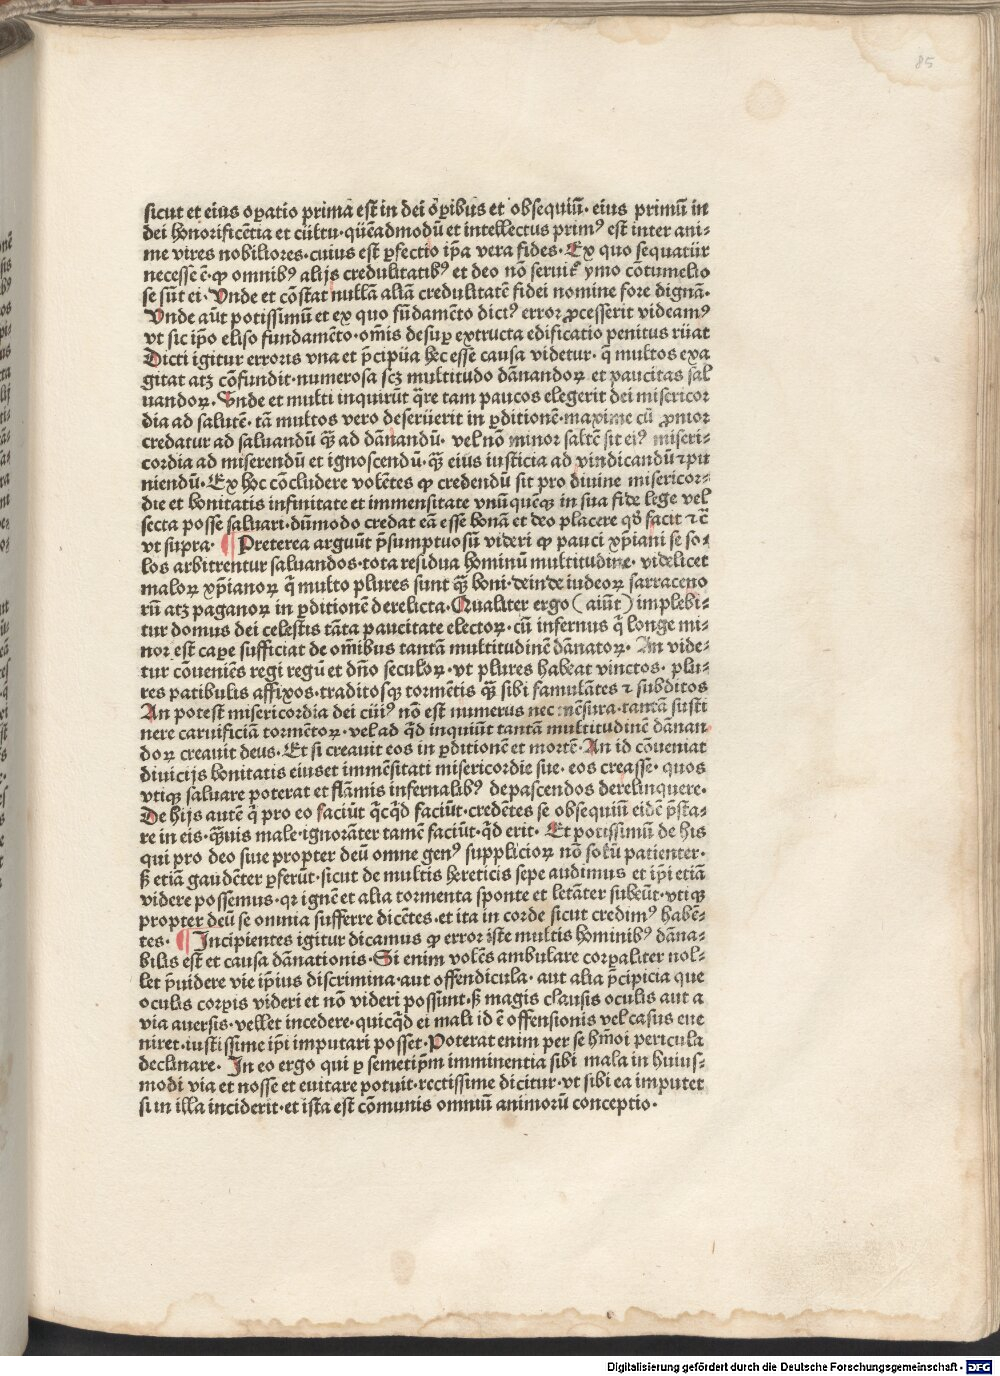 85
sicut et eius oꝑatio prima est in dei oꝑibus et obsequiū· eius primū in
dei honorificētia et cūltu· quēadmodū et intellectus primꝰ est inter ani⸗
me vires nobiliores· cuius est ꝑfectio ip̄a vera fides· Ex quo sequatūr
necesse ē· ꝙ omnibꝰ alijs credulitatibꝰ et deo nō seruit᷑ ymo cōtumelio
se sūt ei· Vnde et cōstat nullā aliā credulitatē fidei nomine fore dignā·
Vnde aūt potissimū et ex quo fūdamēto dictꝰ error ꝓcesserit videamꝰ
vt sic ip̄o eliso fundamēto· om̄is desuꝑ extructa edificatio penitus rūat
Dicti igitur erroris vna et p̄cipūa hec esse causa videtur· q̄ multos exa
gitat atꝫ cōfundit· numerosa scꝫ multitudo dānandoꝝ et paucitas sal
uandoꝝ· Vnde et multi inquirūt q̄re tam paucos elegerit dei misericor
dia ad salutē· tā multos vero deserūerit in ꝑditionē· maxime cū ꝓnior
credatur ad saluandū qꝫ̄ ad dānandū· vel nō minor saltē sit eiꝰ miseri⸗
cordia ad miserendū et ignoscendū· qꝫ̄ eius iusticia ad vindicandū ⁊ pu
niendū· Ex hoc cōcludere volētes ꝙ credendū sit pro diuine misericor⸗
die et bonitatis infinitate et immensitate vnū quēqꝫ in sua fide lege vel
secta posse saluari· dūmodo credat eā esse bonā et deo placere qd̓ facit ⁊ c̄
vt supra· ¶ Preterea arguūt p̄sumptuosū videri ꝙ pauci xp̄iani se so⸗
los arbitrentur saluandos· tota residua hominū multitudine· videlicet
maloꝝ xp̄ianoꝝ q̄ multo plures sunt qꝫ̄ boni· deinde iudeoꝝ sarraceno
rū atꝫ paganoꝝ in ꝑditionē derelicta· Qualiter ergo (aiūt) implebi⸗
tur domus dei celestis tāta paucitate electoꝝ· cū infernus q̄ longe mi⸗
nor est caꝑe sufficiat de om̄ibus tantā multitudinē dānatoꝝ· An vide⸗
tur cōueniēs regi regū et dn̄o seculoꝝ· vt plures habeat vinctos· plu⸗
res patibulis affixos· traditosqꝫ tormētis qꝫ̄ sibi famulātes ⁊ subditos
An potest misericordia dei cuiꝰ nō est numerus nec mēsura· tantā susti
nere carnificiā tormētoꝝ· vel ad qd̄ inquiūt tantā multitudinē dānan
doꝝ creauit deus· Et si creauit eos in ꝑditionē et mortē· An id cōueniat
diuicijs bonitatis eius et immēsitati misericordie sue· eos creasse· quos
vtiqꝫ saluare poterat et flāmis infernalibꝰ depascendos derelinquere·
De hijs autē q̄ pro eo faciūt q̄cqd̄ faciūt· credētes se obsequiū eidē p̄sta⸗
re in eis· qꝫ̄uis male· ignorāter tamē faciūt· qd̄ erit· Et potissimū de his
qui pro deo siue propter deū omne genꝰ supplicioꝝ nō solū patienter·
sꝫ etiā gaudēter ꝑferūt· sicut de multis hereticis sepe audimus et ip̄i etiā
videre possemus· qꝛ ignē et alia tormenta sponte et letāter subeūt· vti qꝫ
propter deū se omnia sufferre dicētes· et ita in corde sicut credimꝰ habē⸗
tes· ¶ Incipientes igitur dicamus ꝙ error iste multis hominibꝰ dāna⸗
bilis est et causa dānationis· Si enim volēs ambulare corꝑaliter nol⸗
let p̄uidere vie ip̄ius discrimina· aut offendicula· aut alia p̄cipicia que
oculis corꝑis videri et nō videri possunt· sꝫ magis clausis oculis aut a
via auersis· vellet incedere· quicqd̄ ei mali id ē offensionis vel casus eue
niret· iustissime ip̄i imputari posset· Poterat enim per se hm̄oi pericula
declinare· In eo ergo qui ꝑ semetip̄m imminentia sibi mala in huius⸗
modi via et nosse et euitare potuit· rectissime dicitur· vt sibi ea imputet
si in illa inciderit· et ista est cōmunis omniū animorū conceptio·
Digitalisierung gefördert durch die Deutsche Forschungsgemeinschaft - DFG